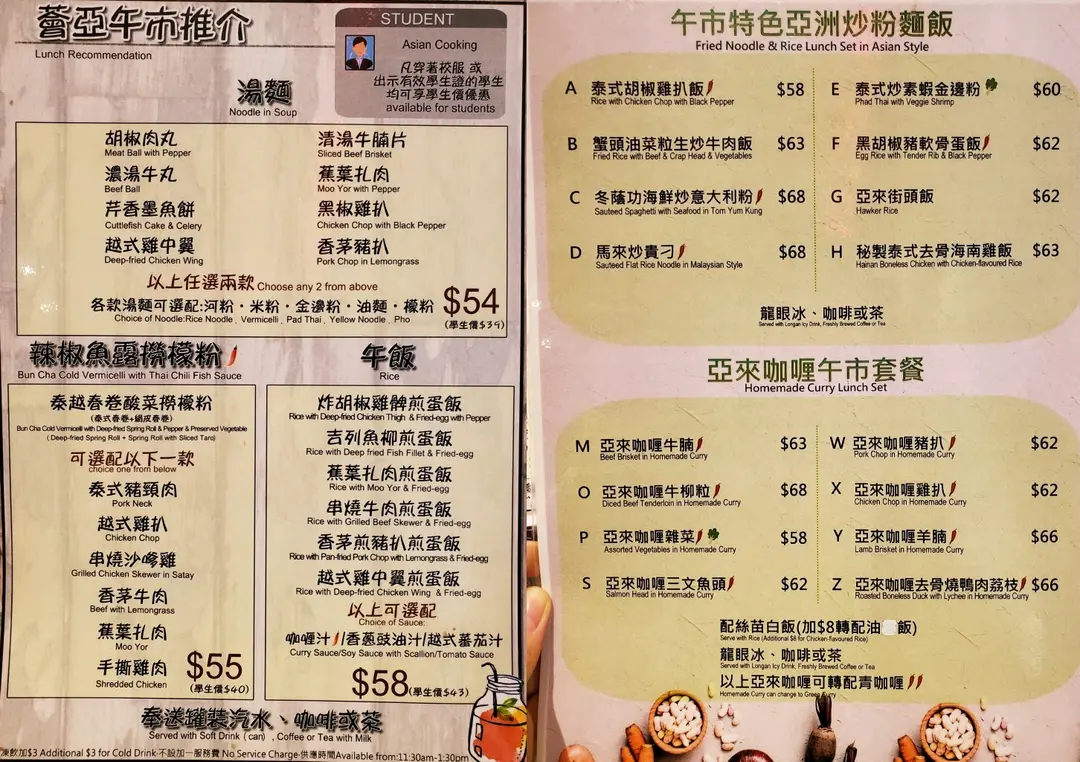 薈亞午市推介
Lunch Recommendation
STUDENT
Asian Cooking
凡穿著校服 或
出示有效學生證的學生
均可享學生價優惠
available for students
湯麵
Noodle in Soup
胡椒肉丸
Meat Ball with Pepper
濃湯牛丸
Beef Ball
芹香墨魚餅
Cuttlefish Cake & Celery
越式雞中翼
Deep-fried Chicken Wing
清湯牛腩片
Sliced Beef Brisket
蕉葉扎肉
Moo Yor with Pepper
黑椒雞扒
Chicken Chop with Black Pepper
香茅豬扒
Pork Chop in Lemongrass
以上任選兩款 Choose any 2 from above
各款湯麵可選配:河粉・米粉・金邊粉・油麵・檬粉
Choice of Noodle:Rice Noodle、Vermicelli、Pad Thai、Yellow Noodle、Pho
$54
(學生價$39)
辣椒魚露撈檬粉
Bun Cha Cold Vermicelli with Thai Chili Fish Sauce
泰越春卷酸菜撈檬粉
(泰式春卷+網皮春卷)
Bun Cha Cold Vermicelli with Deep-fried Spring Roll & Pepper & Preserved Vegetable
( Deep-fried Spring Roll + Spring Roll with Sliced Taro)
可選配以下一款
choice one from below
泰式豬頸肉
Pork Neck
越式雞扒
Chicken Chop
串燒沙嗲雞
Grilled Chicken Skewer in Satay
香茅牛肉
Beef with Lemongrass
蕉葉扎肉
Moo Yor
手撕雞肉
Shredded Chicken
$55
(學生價$40)
午飯
Rice
炸胡椒雞髀煎蛋飯
Rice with Deep-fried Chicken Thigh & Fried-egg with Pepper
吉列魚柳煎蛋飯
Rice with Deep fried Fish Fillet & Fried-egg
蕉葉扎肉煎蛋飯
Rice with Moo Yor & Fried-egg
串燒牛肉煎蛋飯
Rice with Grilled Beef Skewer & Fried-egg
香茅煎豬扒煎蛋飯
Rice with Pan-fried Pork Chop with Lemongrass & Fried-egg
越式雞中翼煎蛋飯
Rice with Deep-fried Chicken Wing & Fried-egg
以上可選配
Choice of Sauce:
咖喱汁/香蔥豉油汁/越式蕃茄汁
Curry Sauce/Soy Sauce with Scallion/Tomato Sauce
$58(學生價$43)
奉送罐裝汽水、咖啡或茶
Served with Soft Drink (can) , Coffee or Tea with Milk
凍飲加$3 Additional $3 for Cold Drink·不設加一服務費 No Service Charge·供應時間Available from:11:30am-1:30pm
午市特色亞洲炒粉麵飯
Fried Noodle & Rice Lunch Set in Asian Style
A 泰式胡椒雞扒飯 $58
Rice with Chicken Chop with Black Pepper
B 蟹頭油菜粒生炒牛肉飯 $63
Fried Rice with Beef & Crap Head & Vegetables
C 冬蔭功海鮮炒意大利粉 $68
Sauteed Spaghetti with Seafood in Tom Yum Kung
D 馬來炒貴刁 $68
Sauteed Flat Rice Noodle in Malaysian Style
E 泰式炒素蝦金邊粉 $60
Phad Thai with Veggie Shrimp
F 黑胡椒豬軟骨蛋飯 $62
Egg Rice with Tender Rib & Black Pepper
G 亞來街頭飯 $62
Hawker Rice
H 秘製泰式去骨海南雞飯 $63
Hainan Boneless Chicken with Chicken-flavoured Rice
龍眼冰、咖啡或茶
Served with Longan Icy Drink, Freshly Brewed Coffee or Tea
亞來咖喱午市套餐
Homemade Curry Lunch Set
M 亞來咖喱牛腩 $63
Beef Brisket in Homemade Curry
O 亞來咖喱牛柳粒 $68
Diced Beef Tenderloin in Homemade Curry
P 亞來咖喱雜菜 $58
Assorted Vegetables in Homemade Curry
S 亞來咖喱三文魚頭 $62
Salmon Head in Homemade Curry
W 亞來咖喱豬扒 $62
Pork Chop in Homemade Curry
X 亞來咖喱雞扒 $62
Chicken Chop in Homemade Curry
Y 亞來咖喱羊腩 $66
Lamb Brisket in Homemade Curry
Z 亞來咖喱去骨燒鴨肉荔枝 $66
Roasted Boneless Duck with Lychee in Homemade Curry
配絲苗白飯(加$8轉配油飯)
Serve with Rice (Additional $8 for Chicken-flavoured Rice)
龍眼冰、咖啡或茶
Served with Longan Icy Drink, Freshly Brewed Coffee or Tea
以上亞來咖喱可轉配青咖喱
Homemade Curry can change to Green Curry